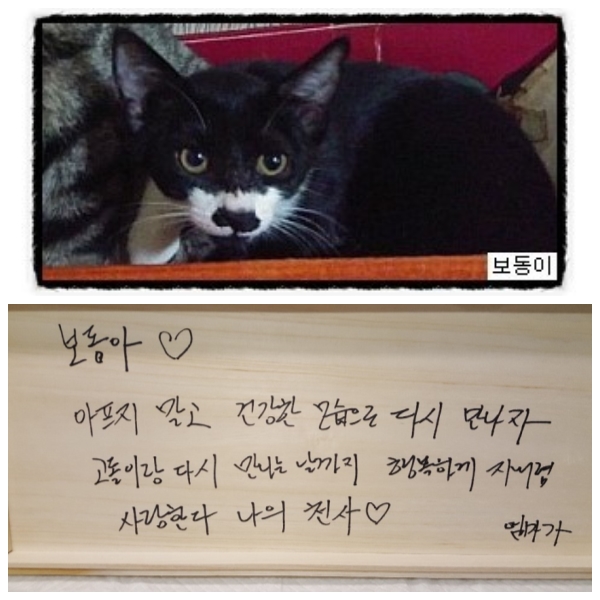 보동이
보동아 ♡
아프지 말고 건강한 모습으로 다시 만나자
고돌이랑 다시 만나는 날까지 행복하게 지내렴
사랑한다 나의 천사♡
엄마가